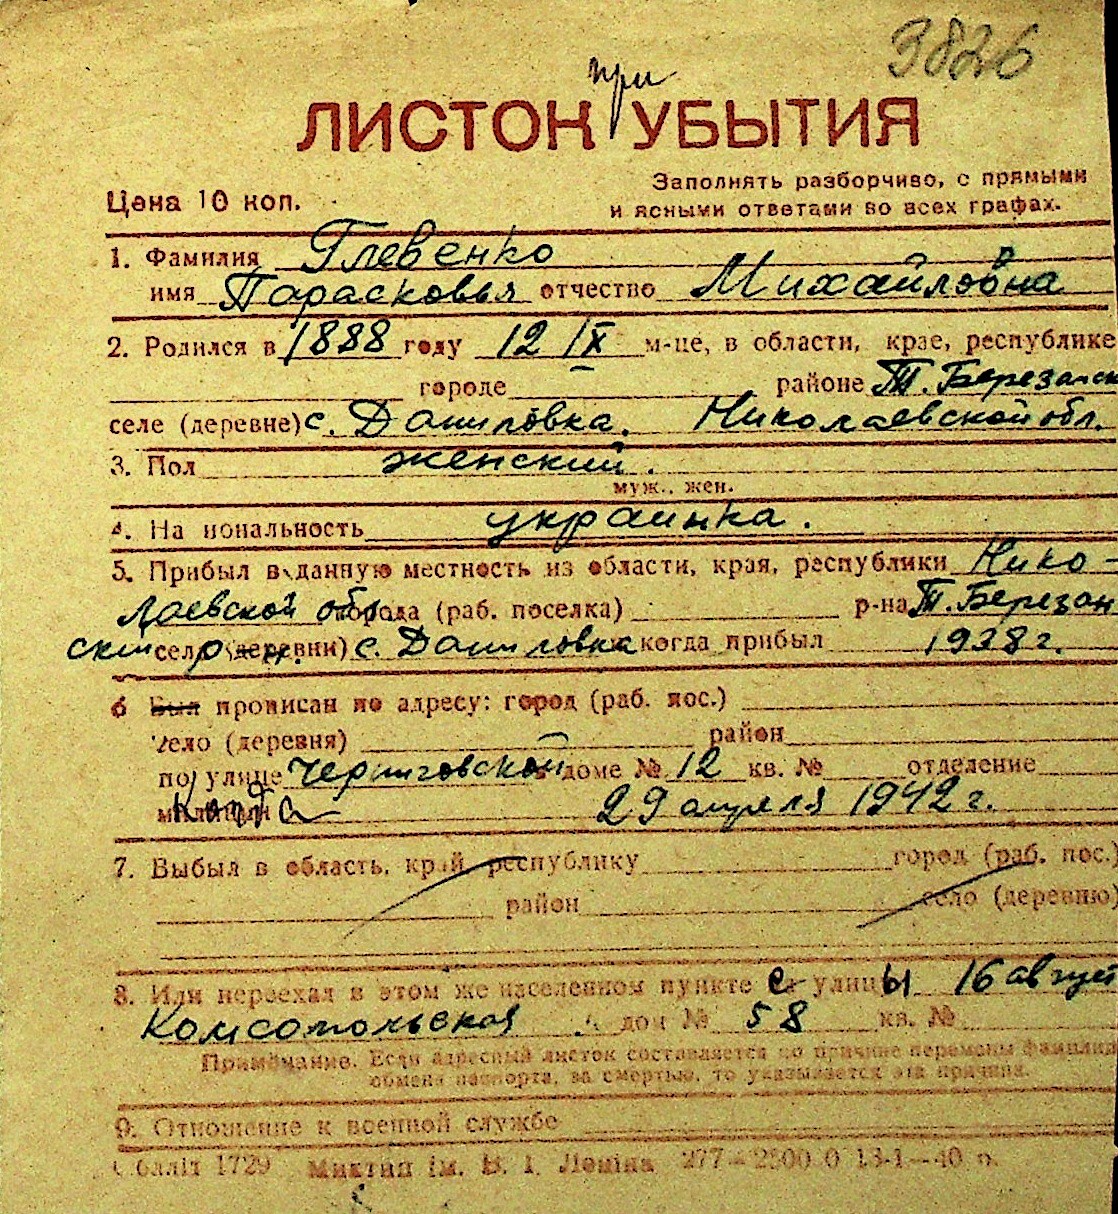 3826
при
ЛИСТОК УБЫТИЯ
Цена 10 коп.
Заполнять разборчиво, с прямыми
и ясными ответами во всех графах.
1. Фамилия Глевенко
имя Парасковья отчество Михайловна
2. Родился в 1888 году 12 IX м-це, в области, крае, республике
городе районе Т. Березанск
селе (деревне) с. Даниловка. Николаевской обл.
3. Пол женский.
муж., жен.
4. На иональность украинка.
5. Прибыл в данную местность из области, края, республики Нико-
лаевской обл. города (раб. поселка) р-на Т. Березан
ский р-н. села (деревни) с. Даниловка когда прибыл 1938 г.
6 Был прописан по адресу: город (раб. пос.)
село (деревня) район
по улице Черниговской доме № 12 кв. № отделение
милиции 29 апреля 1942 г.
7. Выбыл в область, край, республику город (раб. пос.)
район село (деревню)
8. Или переехал в этом же населенном пункте с улицы 16 август
Комсомольская дом № 58 кв. №
Примечание. Если адресный листок составляется по причине перемены фамилии
обмена паспорта, за смертью, то указывается эта причина.
9. Отношение к военной службе
Обліт 1729 Миктип ім. В. І. Леніна 277—2500 0 13-1—40 р.